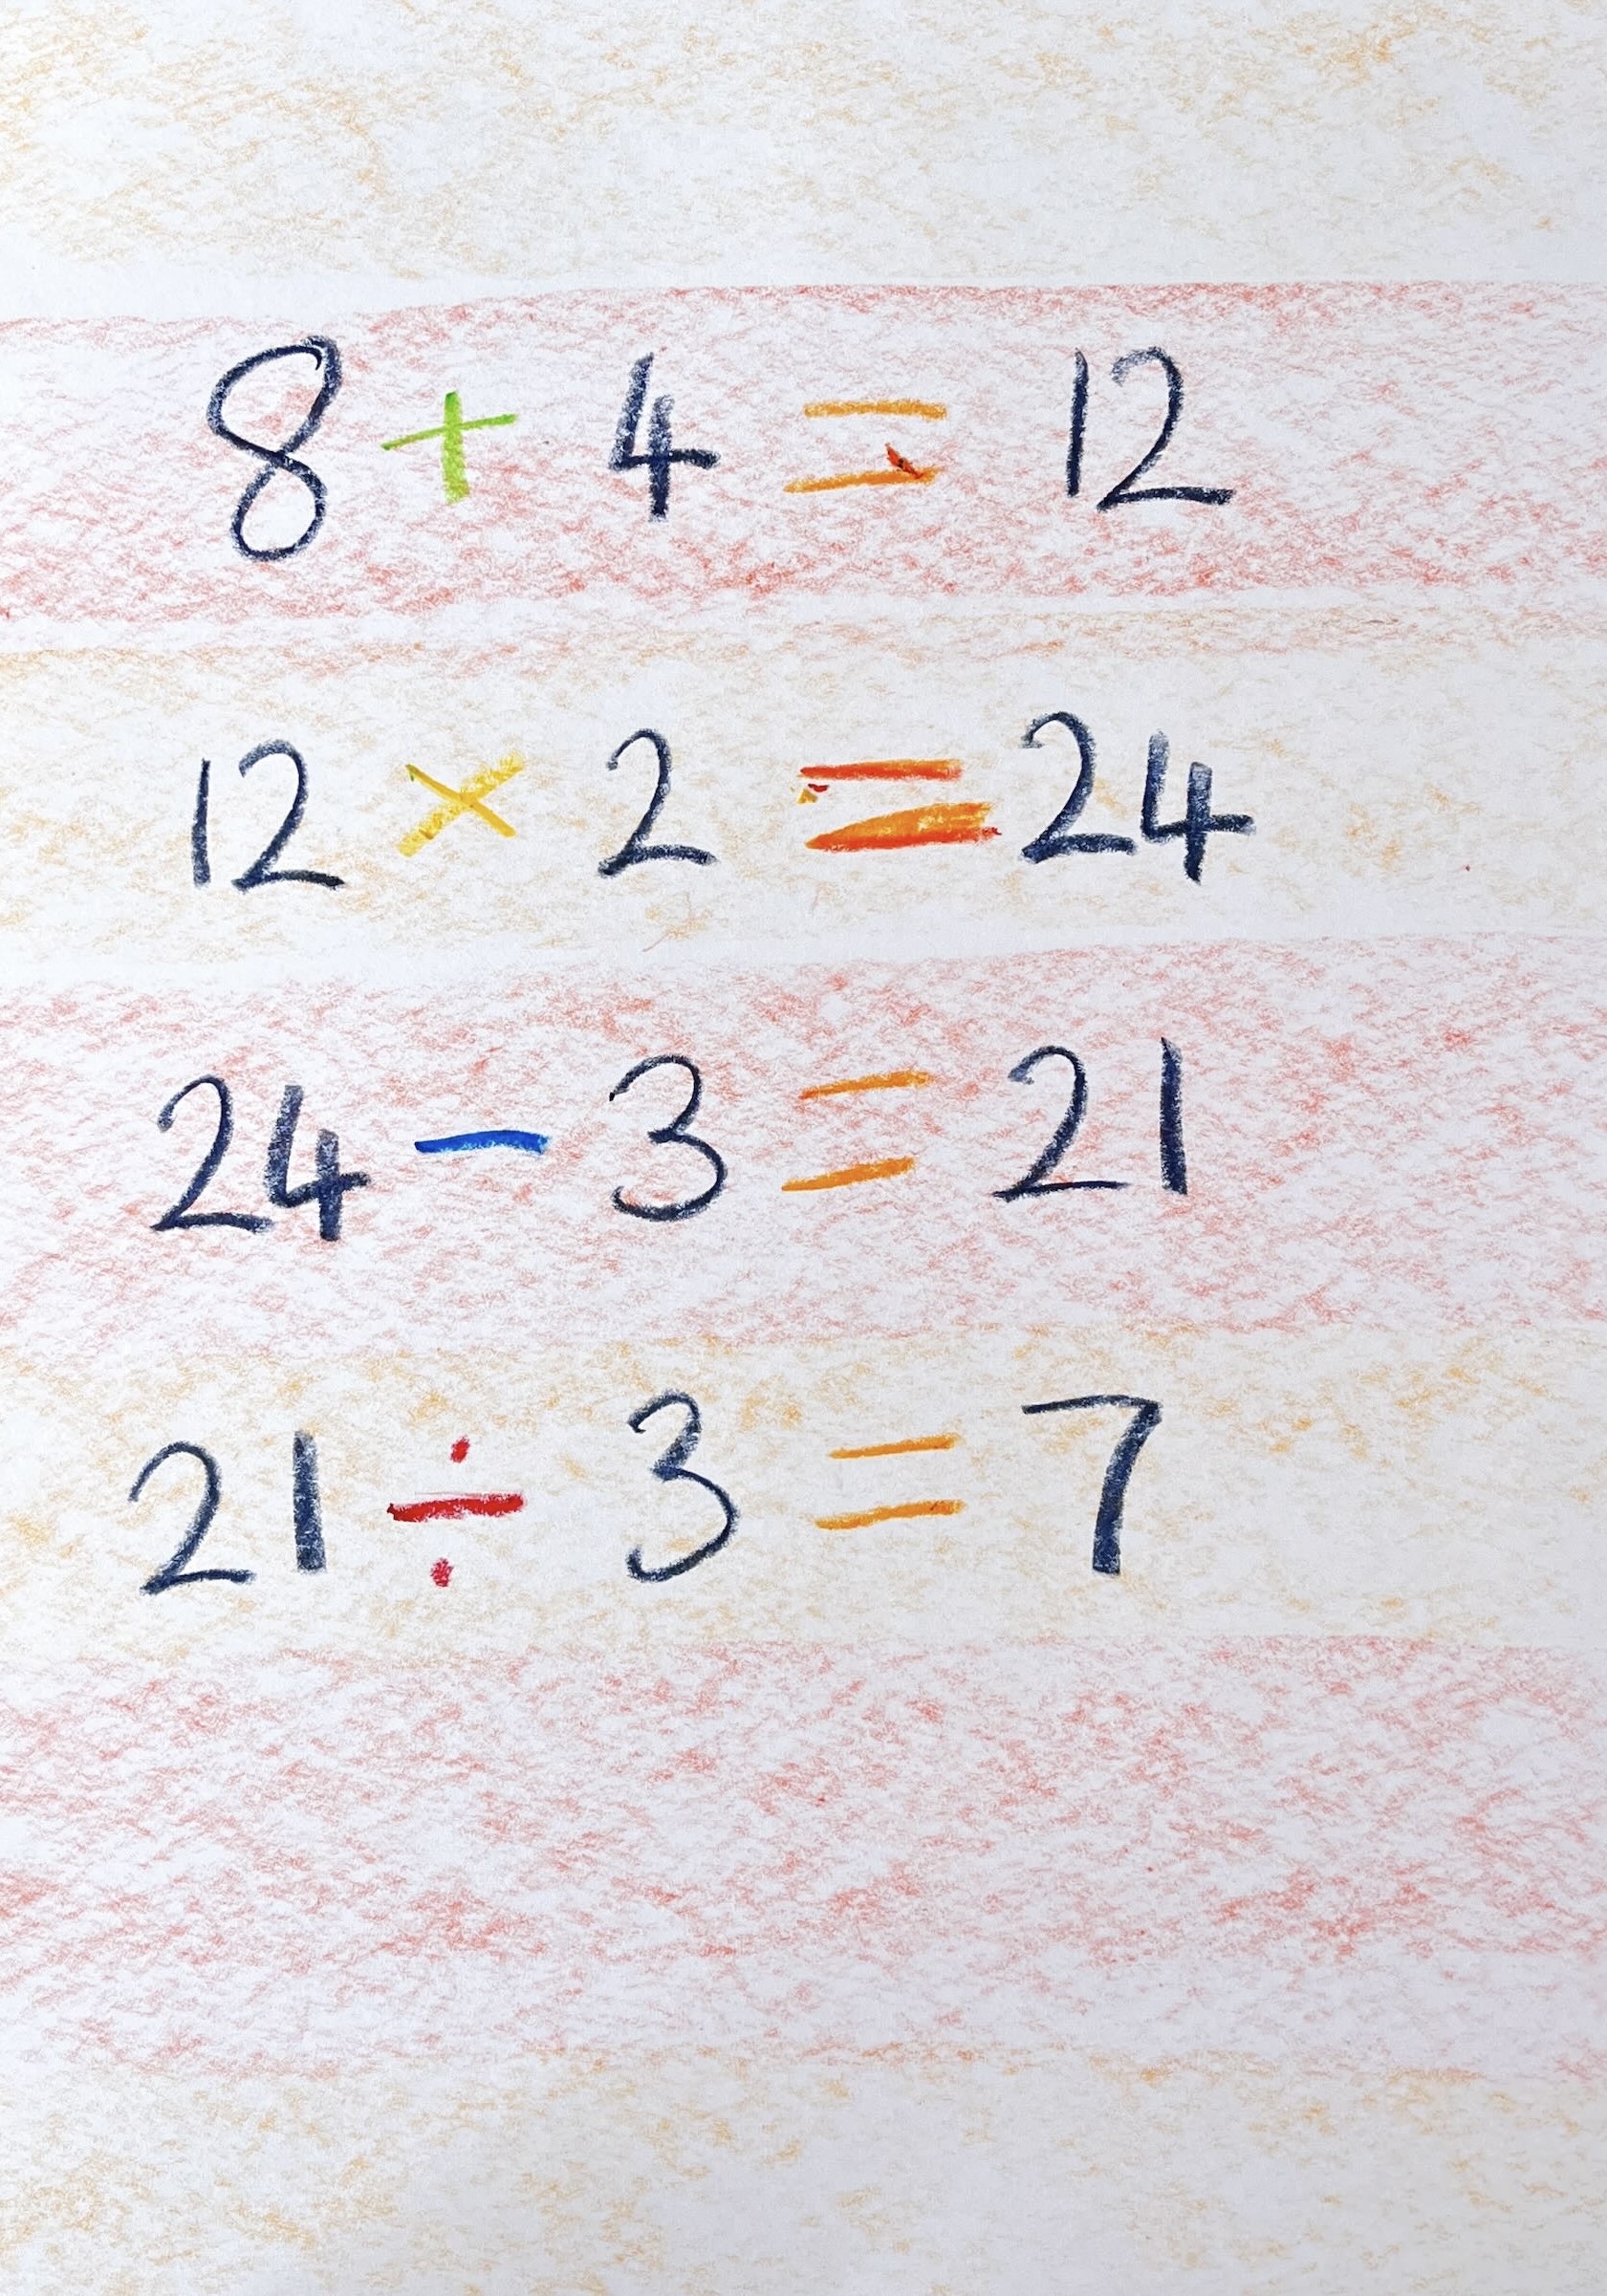 8 + 4 = 12
12 × 2 = 24
24 − 3 = 21
21 ÷ 3 = 7